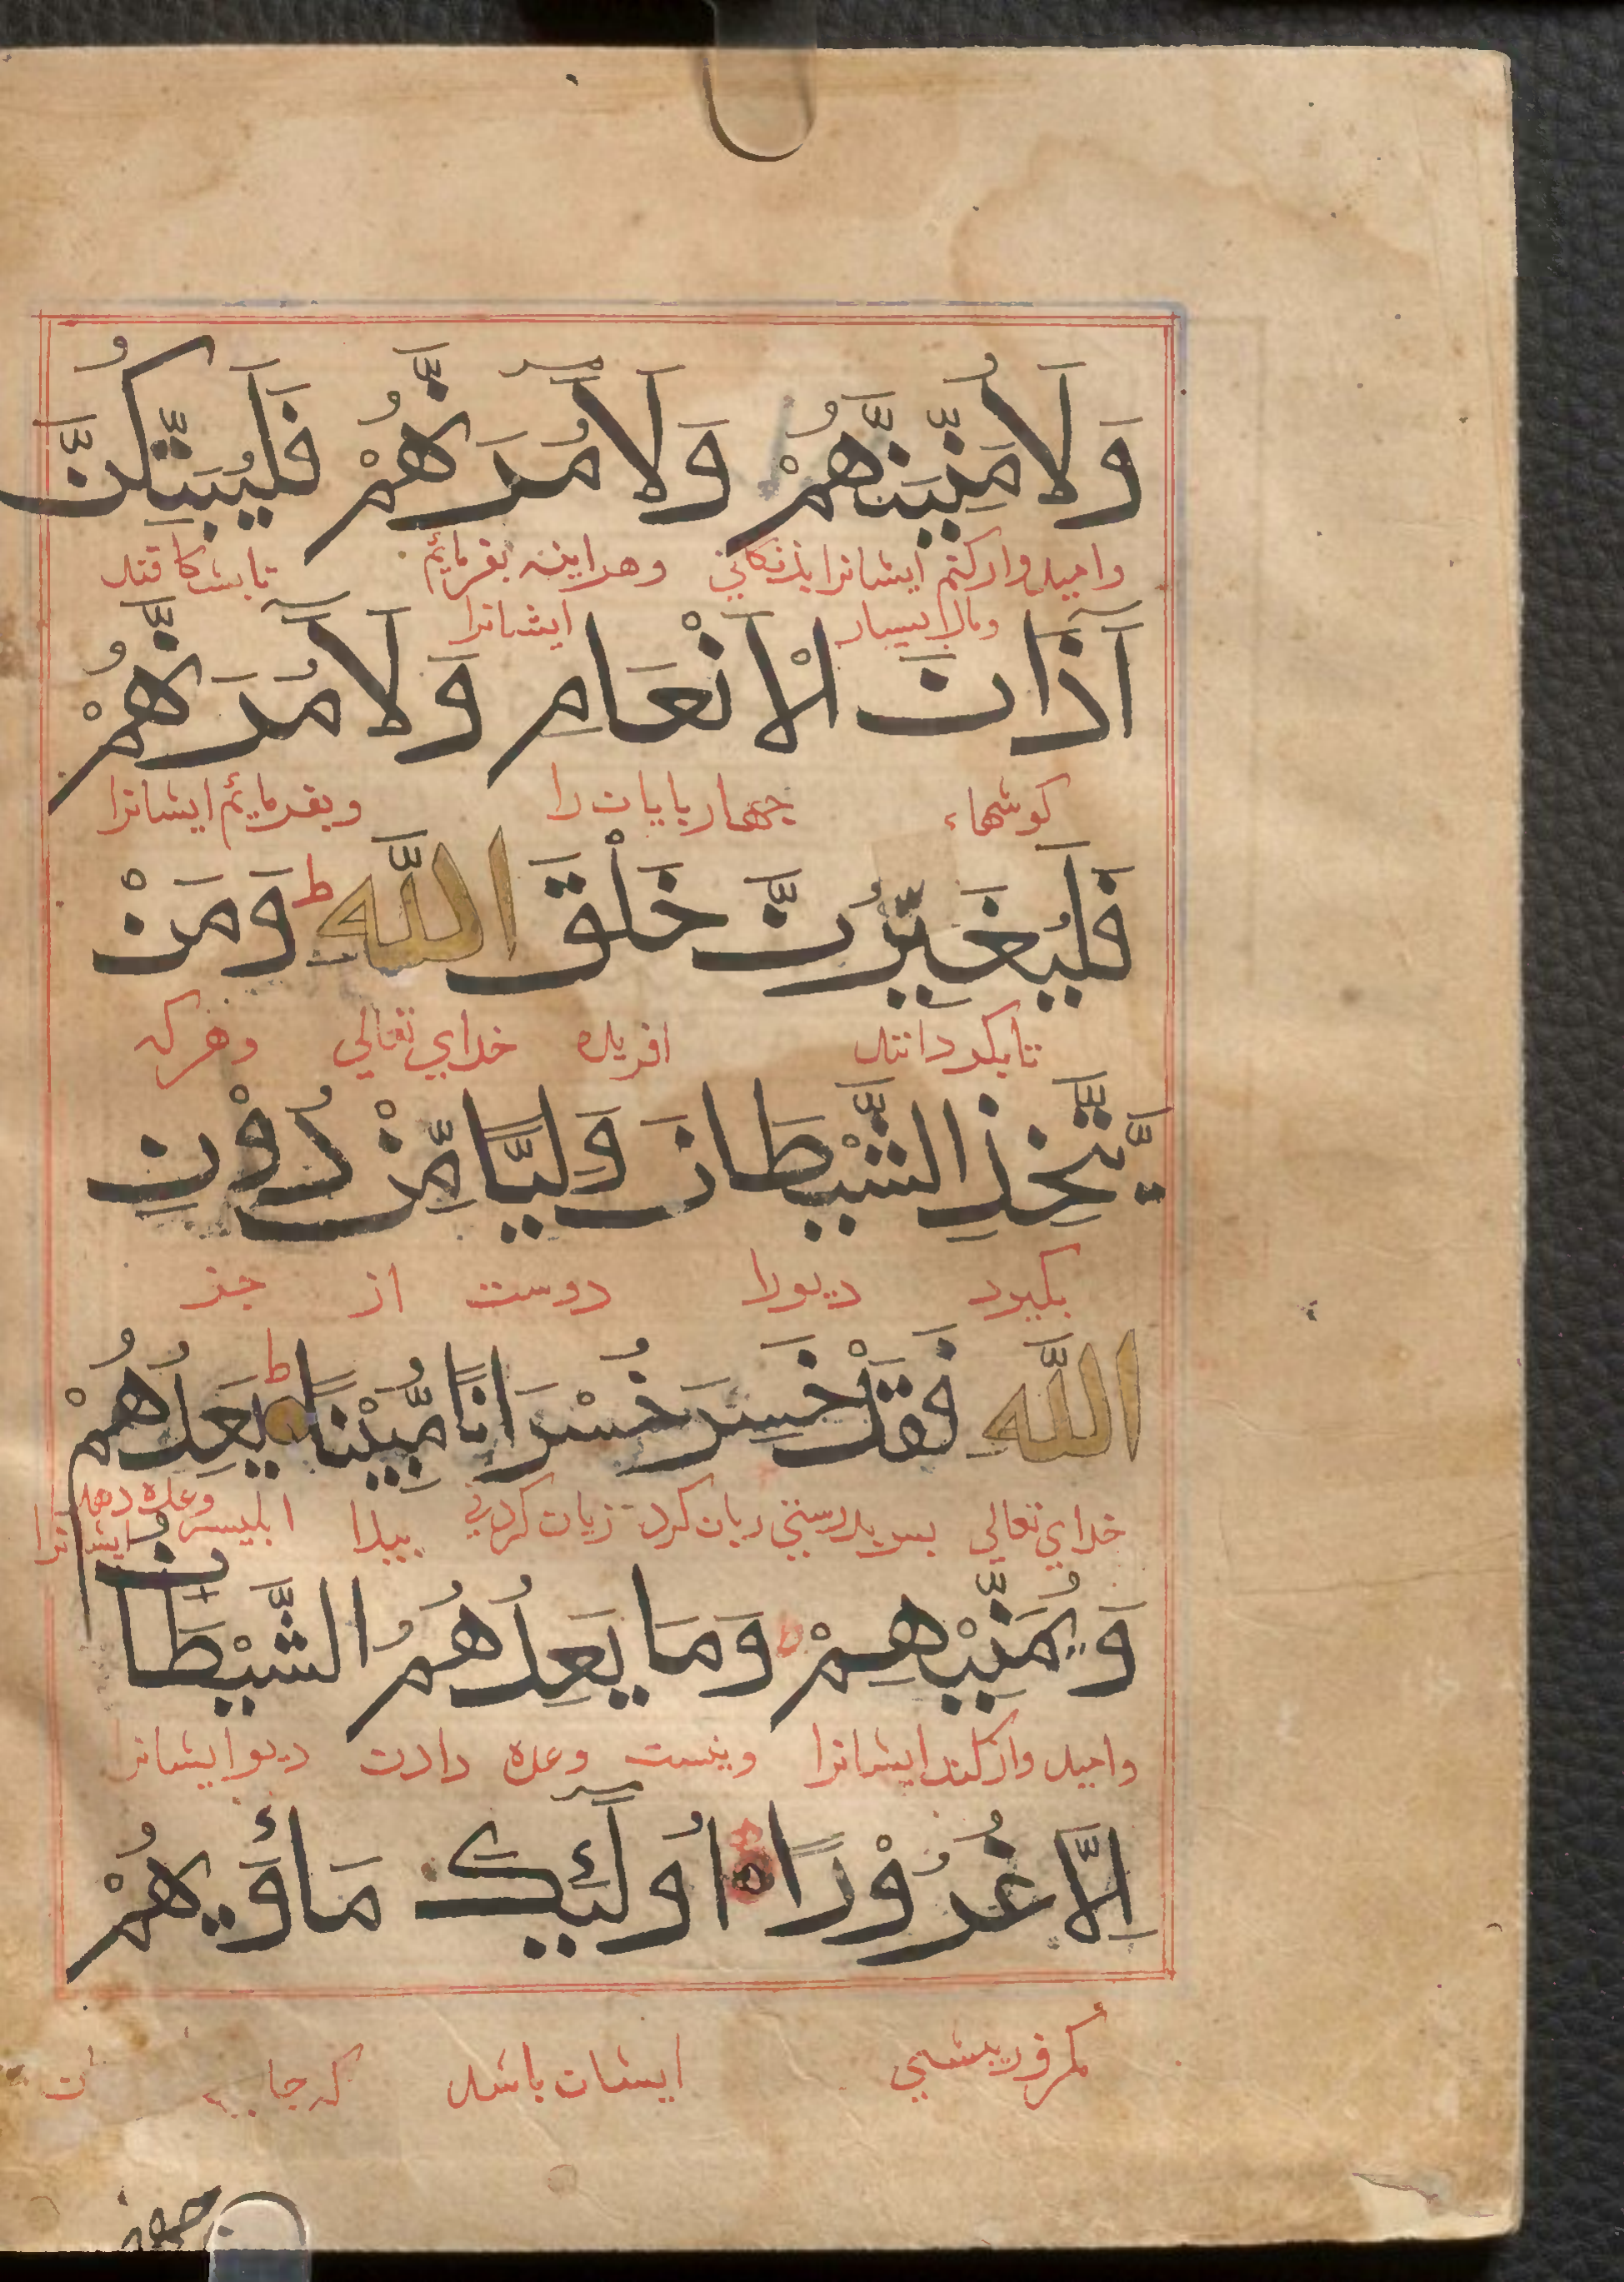 وَلَاُمَنِّيَنَّهُمْ وَلَاٰمُرَنَّهُمْ فَلَيُبَتِّكُنَّ
واميدوار كنم ايشانرا بزندكاني وهراينه بفرمايم تابشكافند
ومال بسيار ايشانرا
آذَانَ الْاَنْعَامِ وَلَاٰمُرَنَّهُمْ
كوشهاء جهارپايان را وبفرمايم ايشانرا
فَلَيُغَيِّرُنَّ خَلْقَ اللَّهِ ط وَمَنْ
تابكردانند افريده خداي تعالي وهركه
يَّتَّخِذِ الشَّيْطَانَ وَلِيًّا مِّنْ دُوْنِ
بكيرد ديورا دوست از جز
اللَّهِ فَقَدْ خَسِرَ خُسْرَانًا مُّبِيْنًا ط يَعِدُهُمْ
خداي تعالي پس بدرستي زيان كرد زيان كردني پيدا ابليس وعده دهد ايشانرا
وَيُمَنِّيْهِمْ وَمَا يَعِدُهُمُ الشَّيْطَانُ
واميدوار كند ايشانرا ونيست وعده دادن ديو ايشانرا
اِلَّا غُرُوْرًا ه اُولٰئِكَ مَأْوٰيهُمْ
مكر فريبشي ايشان باشد كه جاي